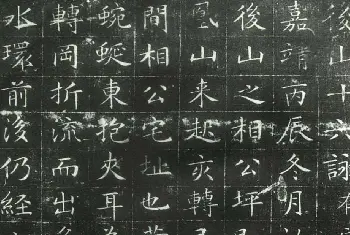 後山十六詠
嘉靖丙辰冬月
後山之相公坪
山来亥轉
間相公宅址也
蜿蜒東抱夾耳
轉岡折流而出
水環前後仍経